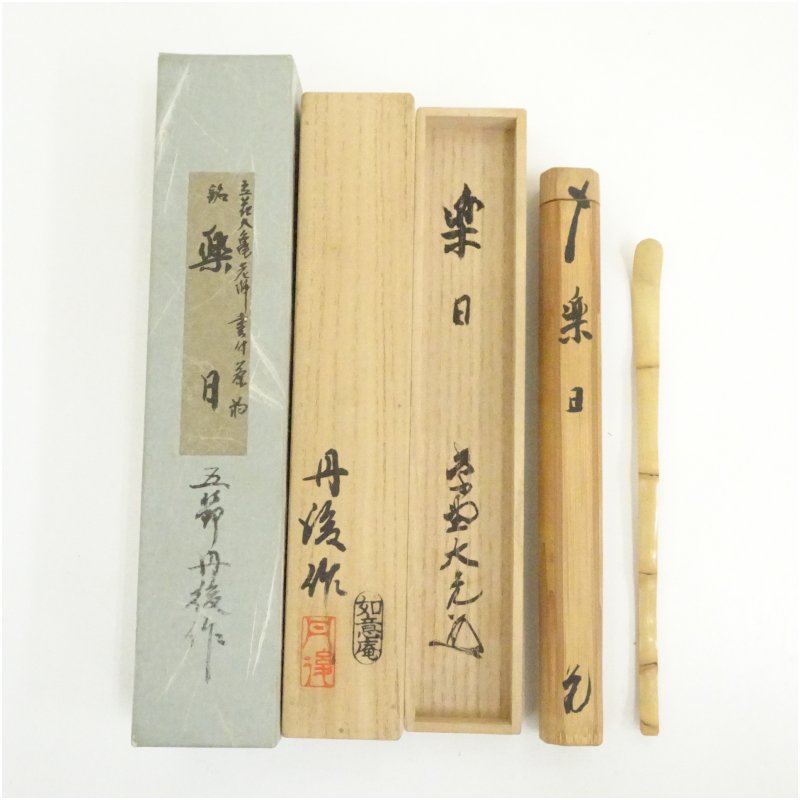 立花大亀老師 書付茶杓
銘
楽日
五節 丹後作
丹後作
如意庵
丹後
楽日
楽日